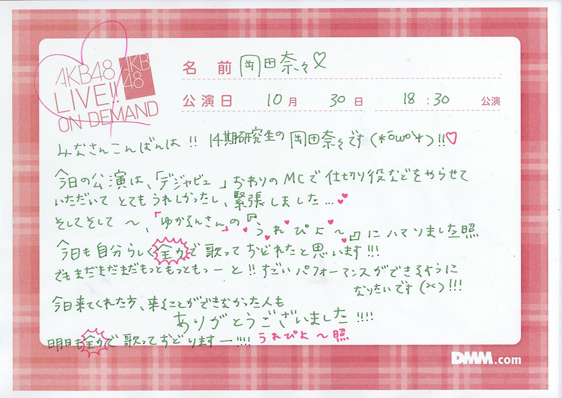 AKB48
LIVE!!
ON DEMAND
AKB
48
名前 岡田奈々♡
公演日 10月 30日 18:30 公演
みなさんこんばんは!! 14期研究生の 岡田奈々です(*ºωº*)!!♡
今日の公演は、「デジャビュ」おわりのMCで仕切り役などをやらせて
いただいて とてもうれしかったし、緊張しました...♥♥
そしてそして〜、「ゆかるんさん」の『うれぴよ〜』にハマりました照
今日も自分らしく全力で歌っておどれたと思います!!!
でもまだまだまだもっともっともっーと!!すごいパフォーマンスができるように
なりたいです(><)!!!
今日来てくれた方、来ることができなかった人も
ありがとうございました!!!!
明日も全力で歌っておどりますー!!!! うれぴよ〜照
DMM.com